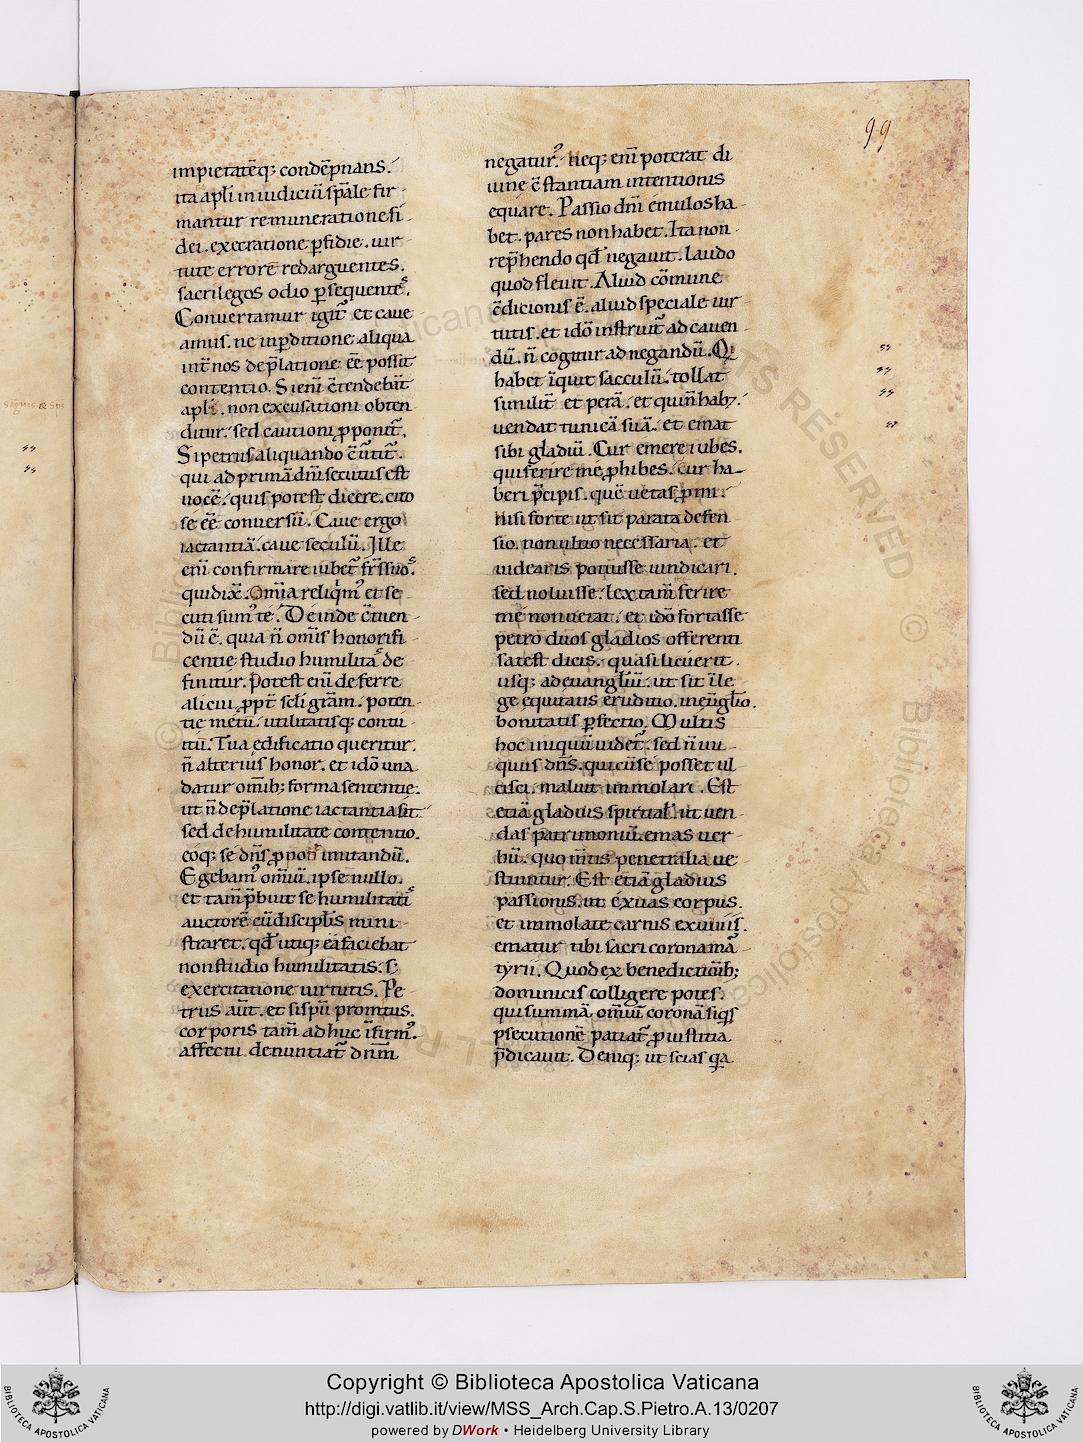 99
impietatēq; condēpnans.
ita apl̄i in iudiciū sp̄ale fir-
mantur remuneratione fi-
dei. execratione ꝑfidie. uir-
tute errorē redarguentes.
sacrilegos odio ꝑsequentes.
Conuertamur igit᷑ et caue
amus. ne inꝑditione aliqua
int̄ nos dep̄latione ēē possit
contentio. Si eni᷑ c̄tendebāt
apl̄i. non excusationi obten
ditur. sed cautioni ꝓponit᷑.
Si petrus aliquando c̄ū̄tit᷑.
qui ad primā dn̄i secutus est
uocē. quis potest dicere. cito
se ēē conuersū. Caue ergo
iactantiā. caue seculū. Ille
eni᷑ confirmare iubet᷑ fr̄s suos.
qui dixit᷑. Om̄ia reliqm᷑ et se-
cuti sum᷑ te. Deinde c̄tuen
dū ē. quia n̄ om̄is honorifi
centie studio humilitas de
finitur. Potest eni᷑ deferre
alicui ꝓpt̄ sc̄li gr̄am. poten
tie metū. utilitatisq; contui
tū. Tua edificatio queritur.
n̄ alterius honor. et idō una
datur om̄ib; forma sententie.
ut n̄ dep̄latione iactantia sit.
sed de humilitate contentio.
eoq; se dn̄s ꝓponit imitandū.
Egebam᷑ om̄iū. ipse nullo.
et tam̄ p̄buit se humilitatis
auctorē cū discipl̄is mini
straret. qđ utiq; eā faciebat
non studio humilitatis. s;
exercitatione uirtutis. Pe
trus aūt. et si sp̄u promtus.
corporis tam̄ adhuc īfirm᷑.
affectu denuntiat᷑ dn̄m
negatur᷑. Neq; eni᷑ poterat di
uine c̄stantiam intentionis
equare. Passio dn̄i emulos ha-
bet. pares non habet. Ita non
rep̄hendo qđ negauit. laudo
quod fleuit. Aliud cōmune
c̄dicionis ē. aliud speciale uir
tutis. et idō instruit᷑ ad cauen
dū. n̄ cogitur ad negandū. Qi
habet īquit sacculū. tollat
similit᷑ et perā. et qui n̄ hab;.
uendat tunicā suā. et emat
sibi gladiū. Cur emere iubes.
qui ferire me ꝓhibes. Cur ha-
beri p̄cipis. quē uetas ꝓmi.
nisi forte ut sit parata defen
sio. non ultio necessaria. et
uidearis potuisse uindicari.
sed noluisse. lex tam̄ ferire
me non uetat. et idō fortasse
petro duos gladios offerenti
sat est dicis. quasi licuerit.
usq; ad euangl̄iū. ut sit ī le
ge equitatis eruditio. in eūgl̄io.
bonitatis ꝑfectio. Multis
hoc iniquū uidet᷑. sed n̄ ini
quus dn̄s. qui cū se posset ul
cisci. maluit immolari. Est
etiā gladius spirital. ut uen
das patrimoniū. emas uer
bū. quo m̄tis penetralia ue
stiuntur. Est etiā gladius
passionis. ut exuas corpus.
et immolate carnis exuuiis.
ematur tibi sacri corona mā
tyrii. Quod ex benedictiōib;
dominicis colligere potes.
qui summā omiū coronā siqs
ꝑsecutionē patiat᷑ ꝓ iustitia
p̄dicauit. Deniq; ut scias qa
Copyright © Biblioteca Apostolica Vaticana
http://digi.vatlib.it/view/MSS_Arch.Cap.S.Pietro.A.13/0207
powered by DWork • Heidelberg University Library
BIBLIOTECA APOSTOLICA VATICANA
BIBLIOTECA APOSTOLICA VATICANA